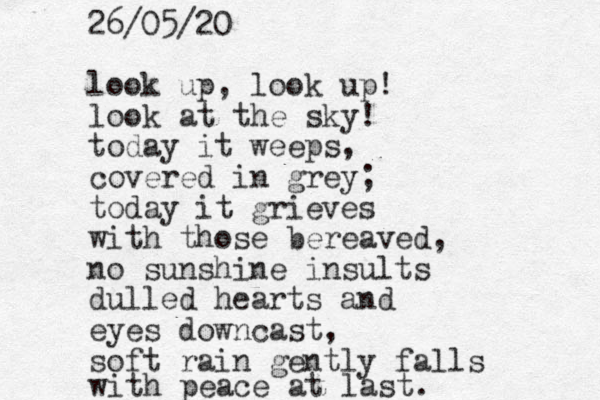 26/05/20
look up, look up!
look at the sky!
today it weeps,
covered in grey;
today it grieves
with those bereaved,
no sunshine insults
dulled hearts and
eyes downcast,
soft rain gently falls
with peace at last.